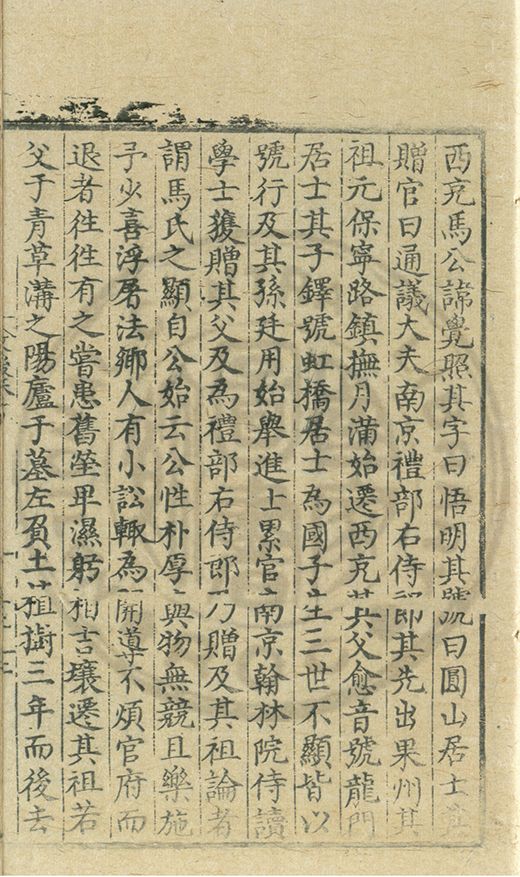 西充馬公諱覺照其字曰悟明其號曰圓山居士其
贈官曰通議大夫南京禮部右侍郎其先出果州其
祖元保寧路鎮撫月滿始遷西充其父愈音號龍門
居士其子鐸號虹橋居士為國子生三世不顯皆以
號行及其孫廷用始舉進士累官南京翰林院侍讀
學士獲贈其父及為禮部右侍郎乃贈及其祖論者
謂馬氏之顯自公始云公性朴厚與物無競且樂施
予少喜浮屠法鄉人有小訟輒為開導不煩官府而
退者徃徃有之嘗患舊塋卑濕躬相吉壤遷其祖若
父于青草溝之陽廬于墓左負土植樹三年而後去